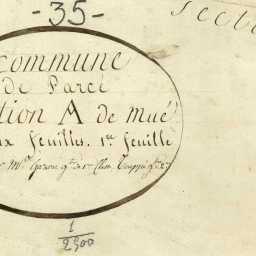 -35- Secti
commune
de Parcé
tion A de mué
ux feuilles. 1re feuille
1
2500